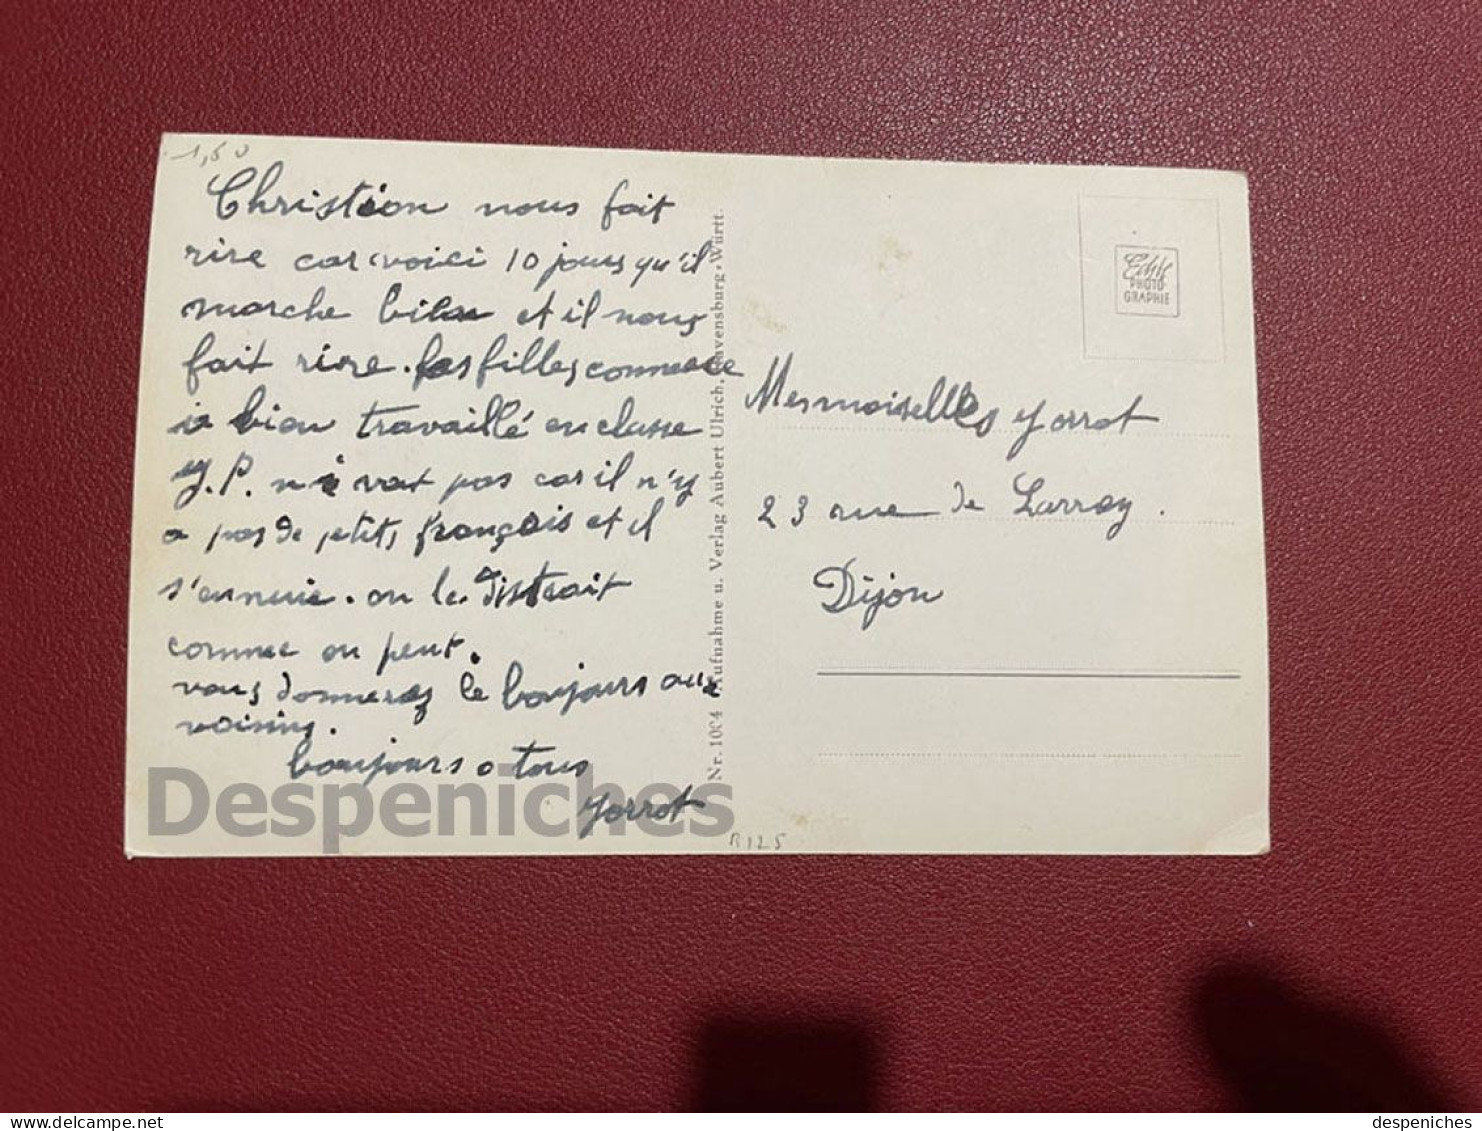 1,50
Christian nous fait
rire car voici 10 jours qu'il
marche bien et il nous
fait rire. les filles comme
bien travaillé en classe
J.P. n'i vat pas car il n'y
a pas de petits français et il
s'ennuie. on le distrait
comme on peut.
vous donnerez le bonjours aux
voisins.
bonjours a tous
Jorrot
Nr. 1004 Aufnahme u. Verlag Aubert Ulrich, Ravensburg-Württ.
Echte
PHOTO-
GRAPHIE
Mesmoiselles Jorrot
23 rue de Larrey.
Dijon
R125
Despeniches
delcampe.net
despeniches